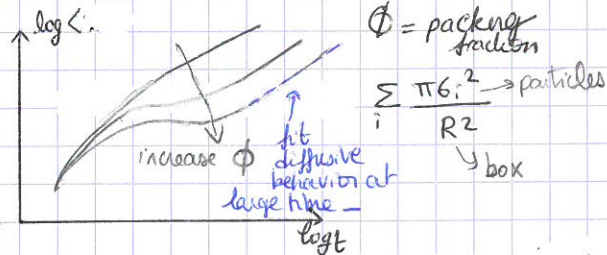 log<.
ϕ = packing
fraction
∑ πσi² → particles
i
R2
↘ box
increase ϕ
fit
diffusive
behavior at
large time
logt